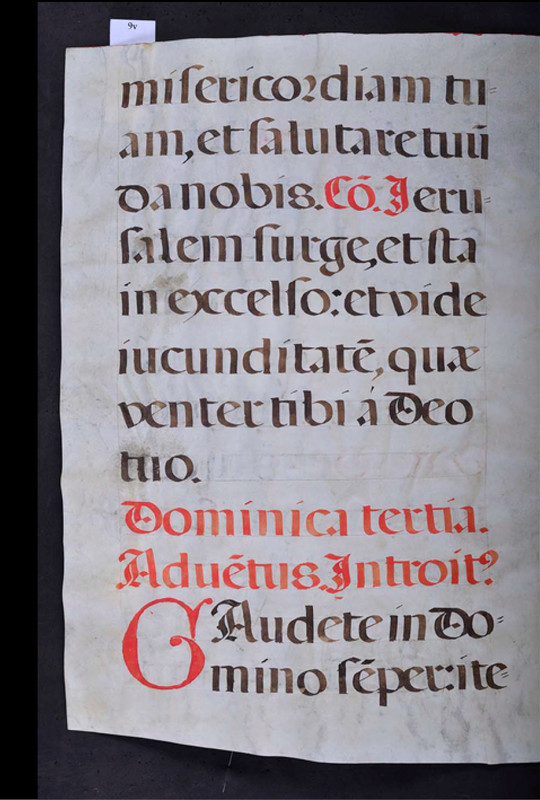 9v
miſericordiam tu⸗
am, et ſalutare tuū
da nobis. Cō. Jeru⸗
ſalem ſurge, et ſta
in excelſo: et vide
iucunditatē, quæ
venter tibi á Deo
tuo.
Dominica tertia.
Aduētus. Introitꝰ
GAudete in Do⸗
mino ſēper: ite⸗